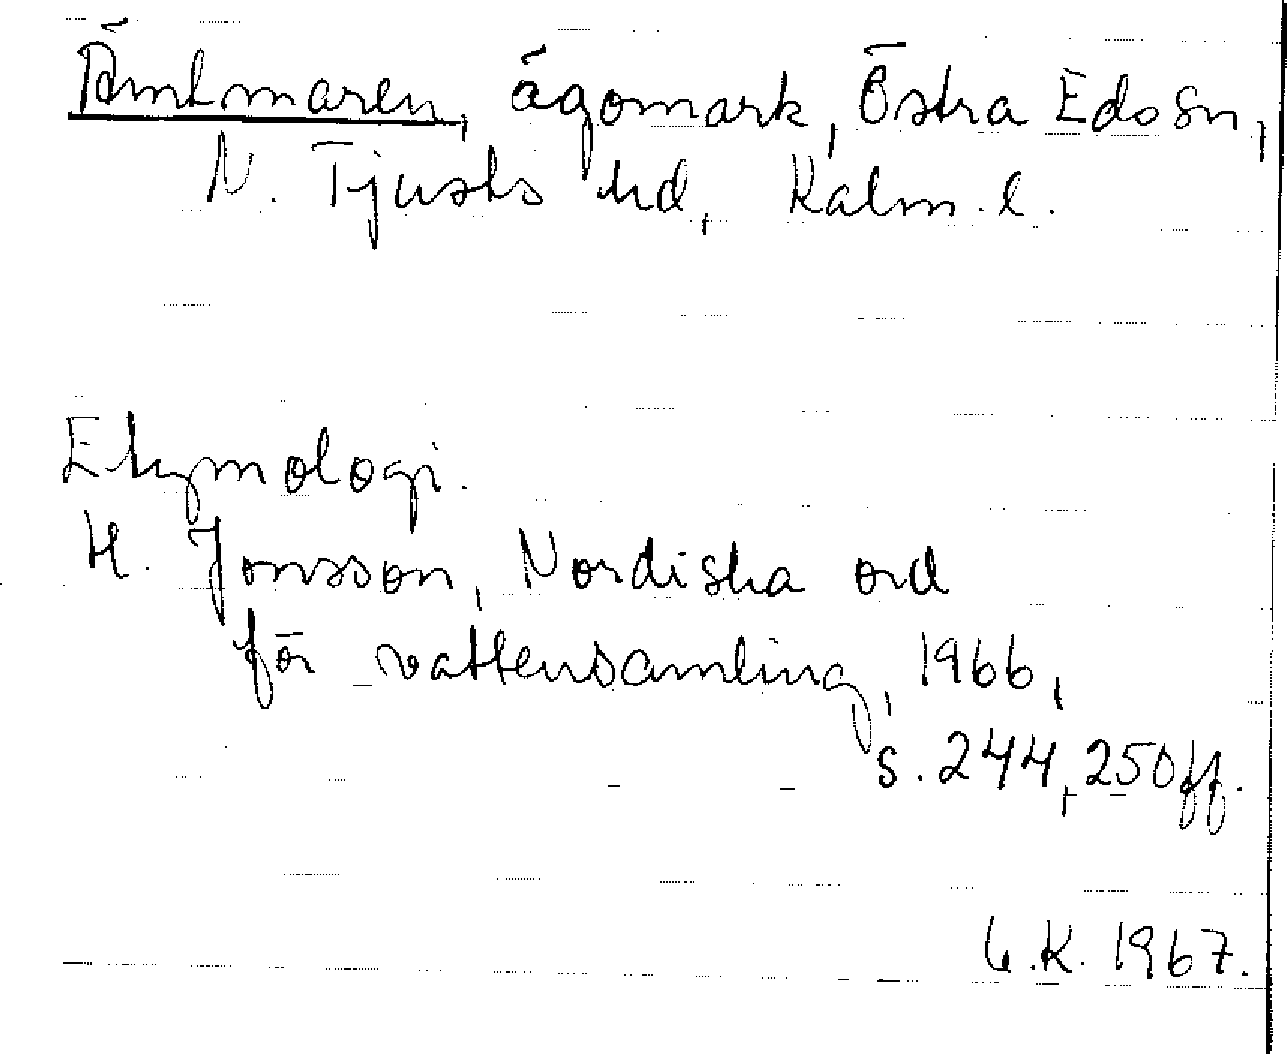 Ämtmaren, ägomark, Östra Eds sn,
N. Tjusts hd, Kalm. l.
Etymologi.
H. Jonsson, Nordiska ord
för vattensamling, 1966,
s. 244, 250 ff.
K. 1967.